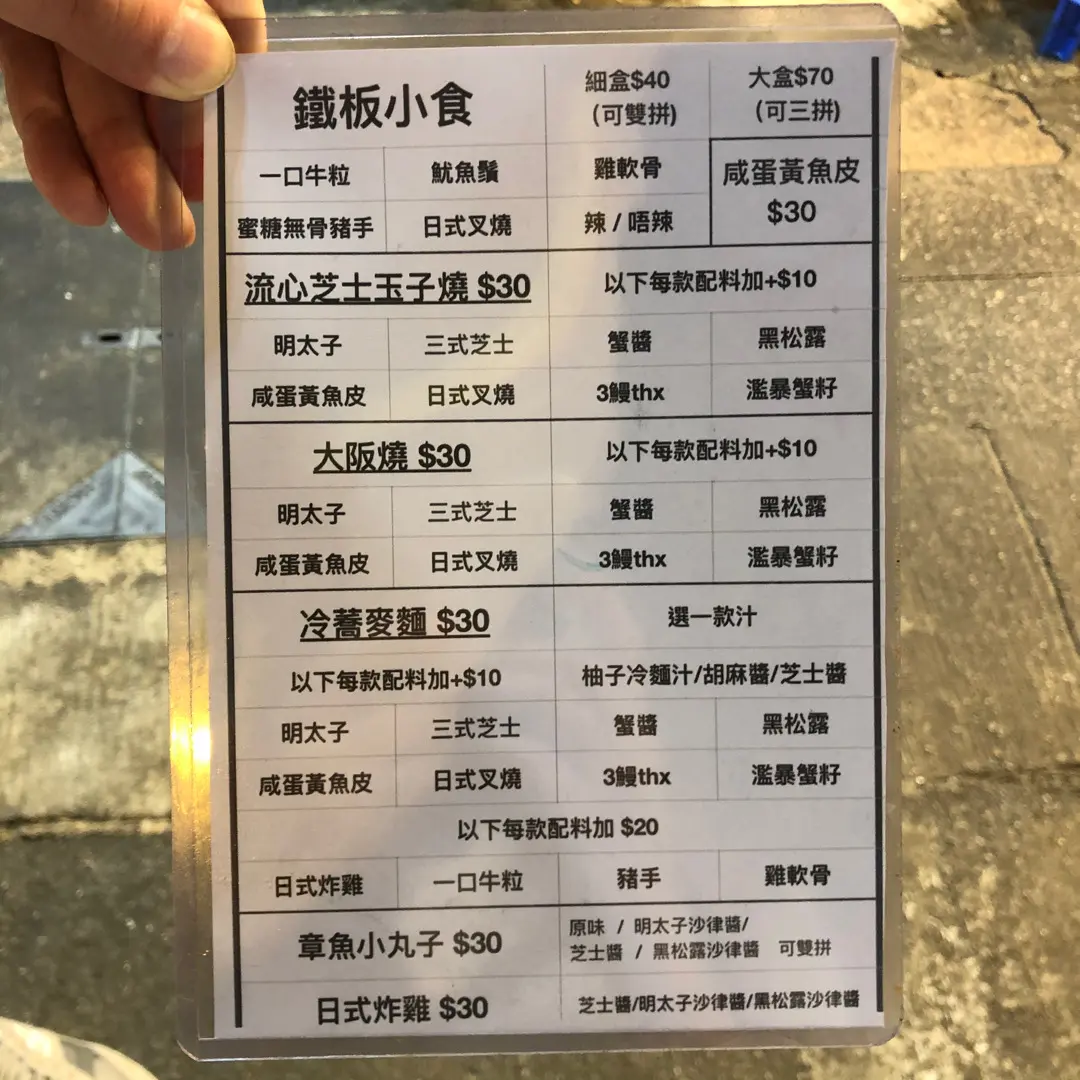 鐵板小食
細盒$40
(可雙拼)
大盒$70
(可三拼)
一口牛粒 魷魚鬚 雞軟骨
咸蛋黃魚皮
$30
蜜糖無骨豬手 日式叉燒 辣 / 唔辣
流心芝士玉子燒 $30 以下每款配料加+$10
明太子 三式芝士 蟹醬 黑松露
咸蛋黃魚皮 日式叉燒 3鰻thx 濫暴蟹籽
大阪燒 $30 以下每款配料加+$10
明太子 三式芝士 蟹醬 黑松露
咸蛋黃魚皮 日式叉燒 3鰻thx 濫暴蟹籽
冷蕎麥麵 $30 選一款汁
以下每款配料加+$10 柚子冷麵汁/胡麻醬/芝士醬
明太子 三式芝士 蟹醬 黑松露
咸蛋黃魚皮 日式叉燒 3鰻thx 濫暴蟹籽
以下每款配料加 $20
日式炸雞 一口牛粒 豬手 雞軟骨
章魚小丸子 $30
原味 / 明太子沙律醬/
芝士醬 / 黑松露沙律醬 可雙拼
日式炸雞 $30 芝士醬/明太子沙律醬/黑松露沙律醬